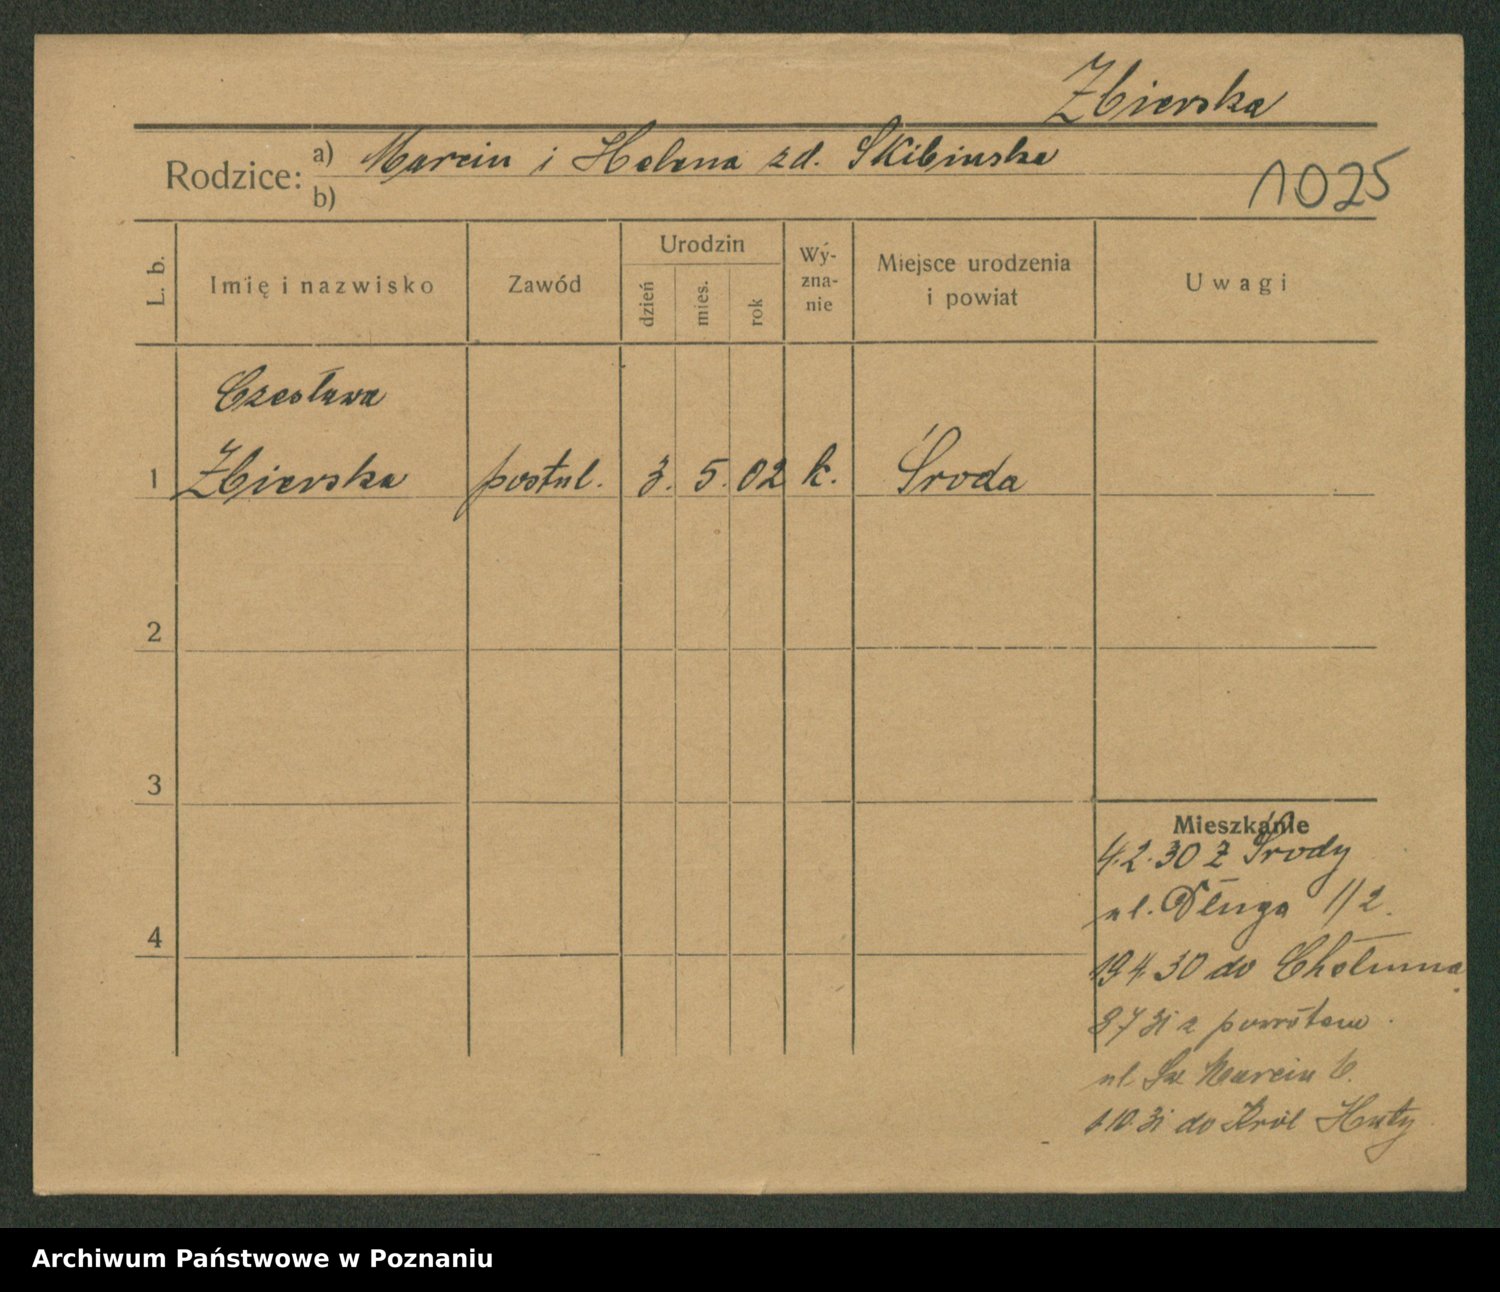 Zbierska
Rodzice: a) Marcin i Helena zd. Skibinska
b)
1025
L. b.
Imię i nazwisko
Zawód
Urodzin
dzień
mies.
rok
Wy-
zna-
nie
Miejsce urodzenia
i powiat
Uwagi
Czesława
1 Zbierska postul. 3. 5. 02 k. Środa
2
3
4
Mieszkanie
4.2.30 z Środy
ul. Długa 1/2.
19.4.30 do Chełmna
8 7 31 z powrotem.
ul Św Marcin
1.10.31 do Król Huty
Archiwum Państwowe w Poznaniu